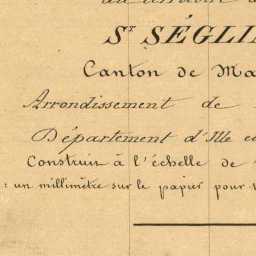 St SÉGLI
Canton de Ma
Arrondissement de
Département d'Ille e
Construit à l'échelle de
: un millimètre sur le papier pour